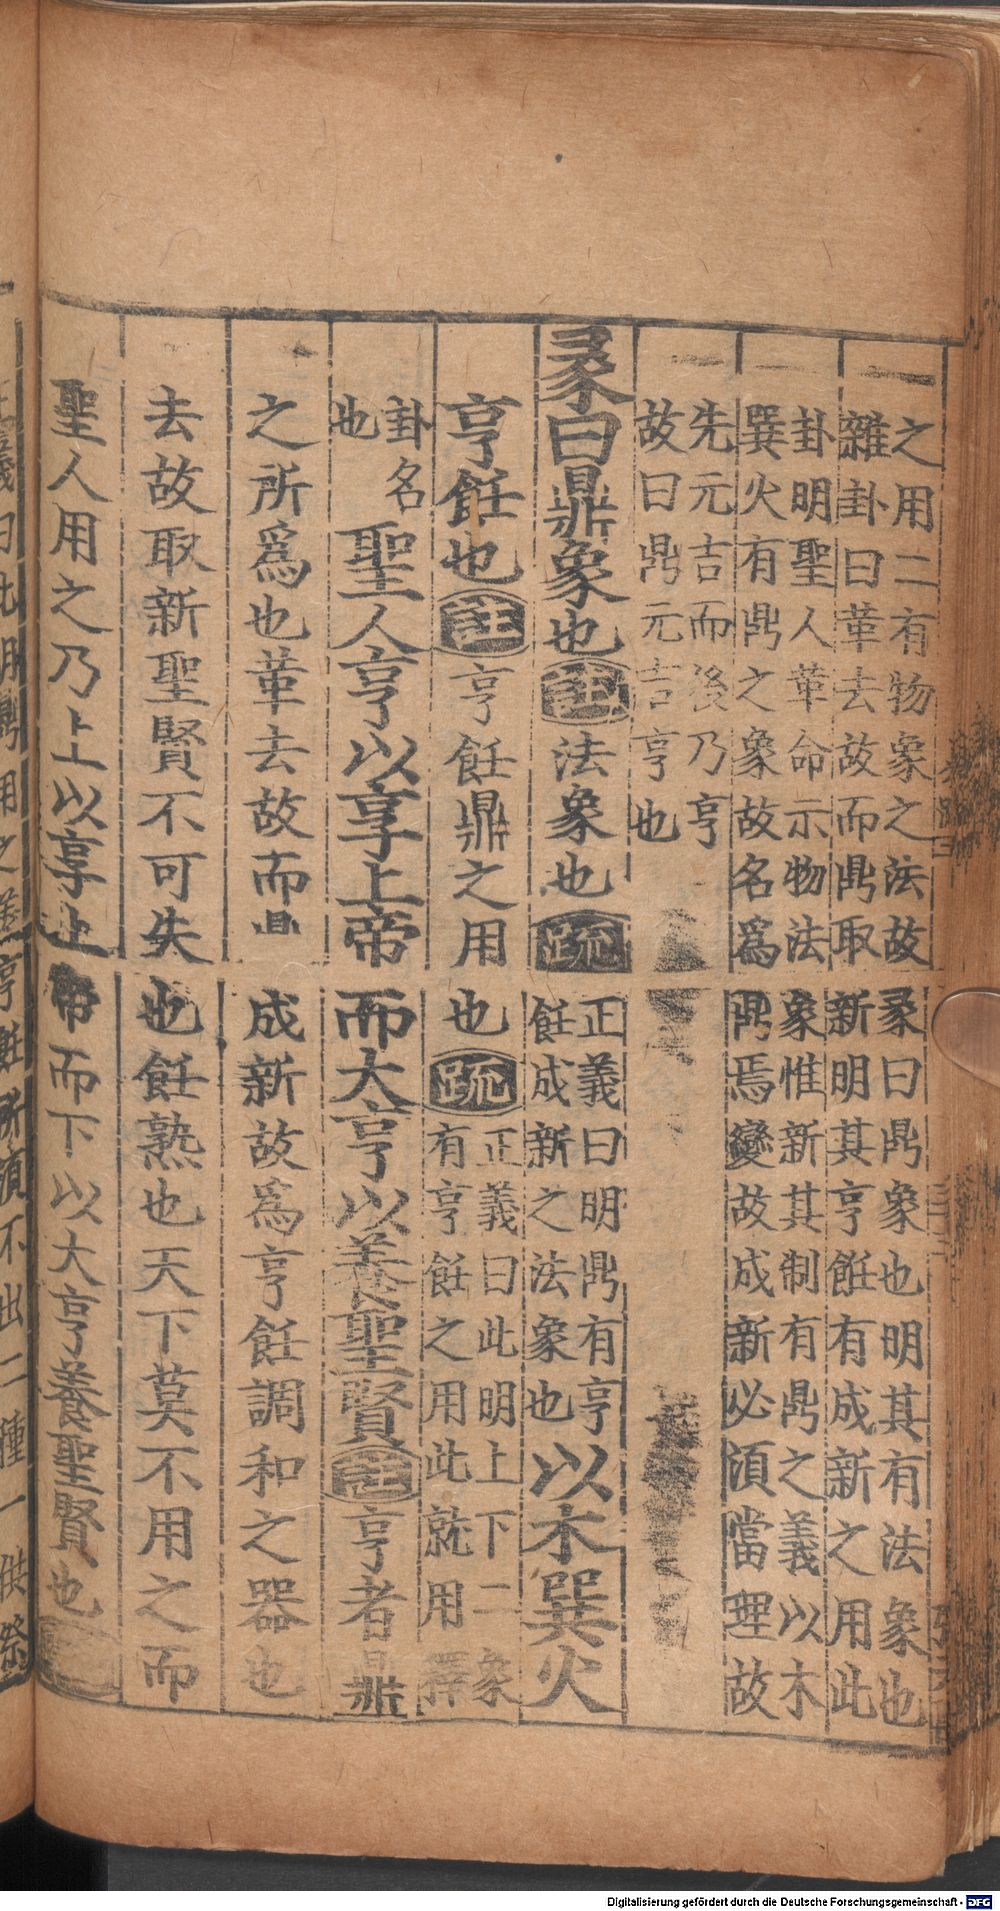 之用二有物象之法故彖曰鼎象也明其有法象也
雜卦曰革去故而鼎取新明其亨飪有成新之用此
卦明聖人革命示物法象惟新其制有鼎之義以木
巽火有鼎之象故名爲鼎焉變故成新必須當理故
先元吉而後乃亨
故曰鼎元吉亨也
彖曰鼎象也註法象也疏正義曰明鼎有亨飪成新之法象也以木巽火
亨飪也註亨飪鼎之用也疏正義曰此明上下二象有亨飪之用此就用釋
卦名也聖人亨以享上帝而大亨以養聖賢註亨者鼎
之所爲也革去故而鼎成新故爲亨飪調和之器也
去故取新聖賢不可失也飪熟也天下莫不用之而
聖人用之乃上以享上帝而下以大亨養聖賢也疏
義曰此明鼎用之美亨飪所須不出二種一供祭
Digitalisierung gefördert durch die Deutsche Forschungsgemeinschaft - DFG